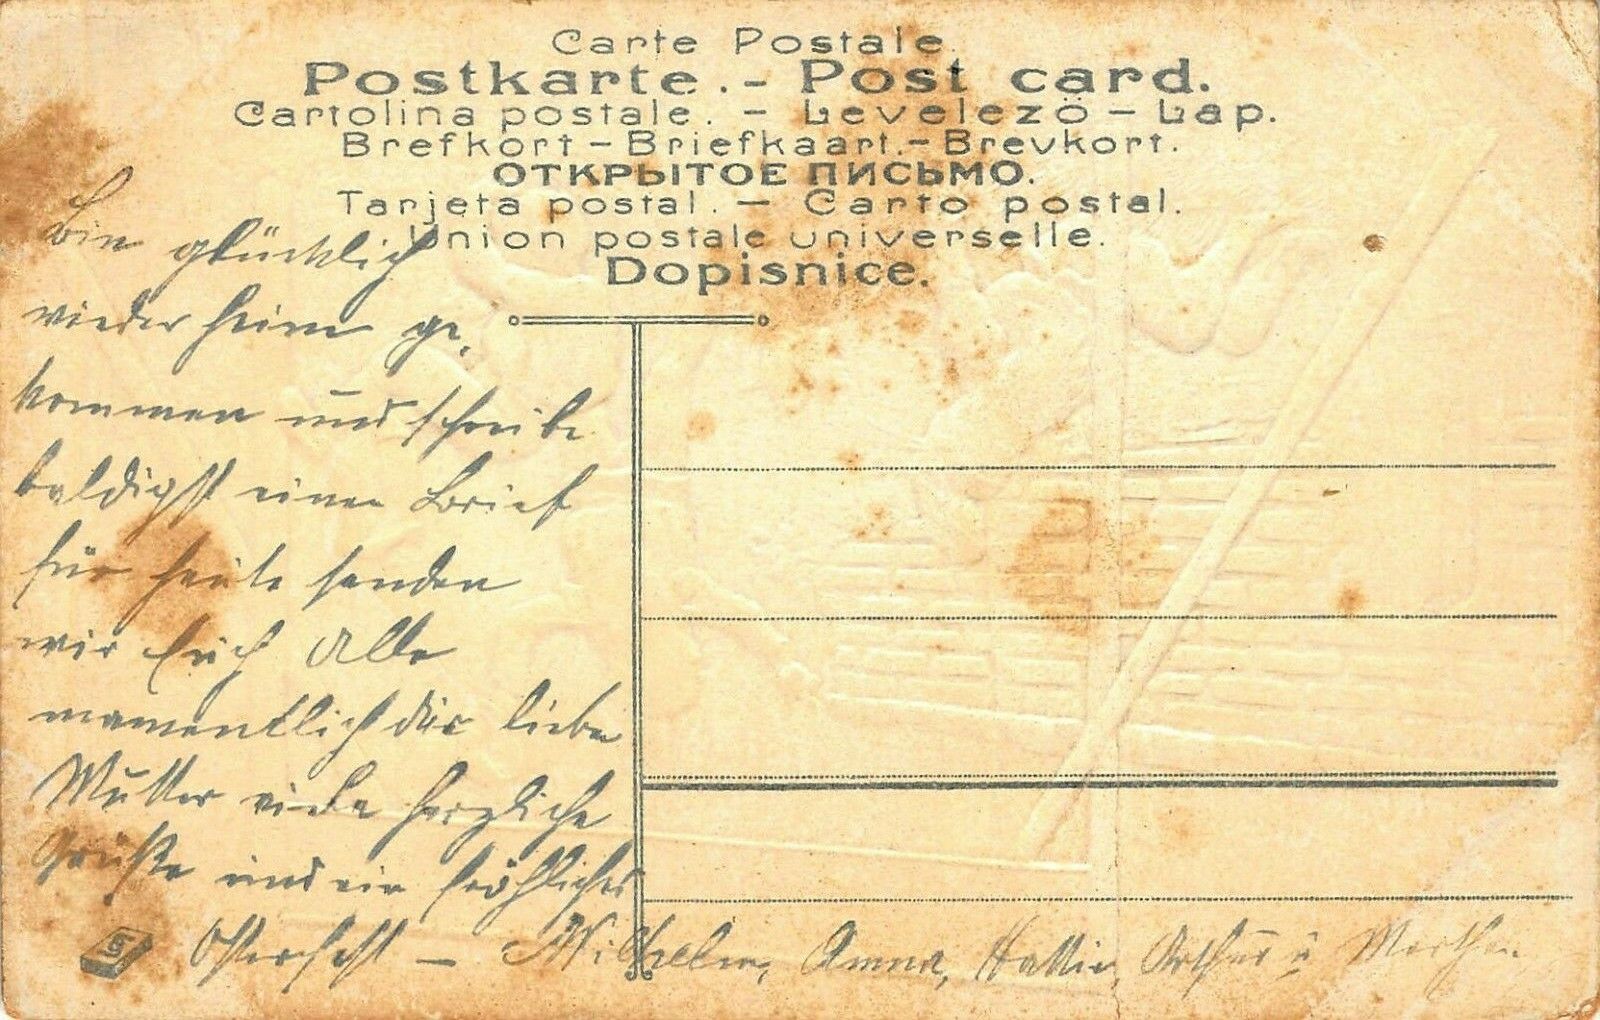 Carte Postale.
Postkarte. - Post card.
Cartolina postale. - Levelező - Lap.
Brefkort - Briefkaart. - Brevkort.
ОТКРЫТОЕ ПИСЬМО.
Tarjeta postal. - Carto postal.
Union postale universelle.
Dopisnice.
Bin glücklich
wieder heim ge,
kommen und schreibe
baldigst einen Brief
für heute senden
wir Euch Alle
namentlich die liebe
Mutter viele herzliche
Grüße und ein fröhliches
Osterfest - Wilhelm, Anna, Hattie, Arthur u Martha.